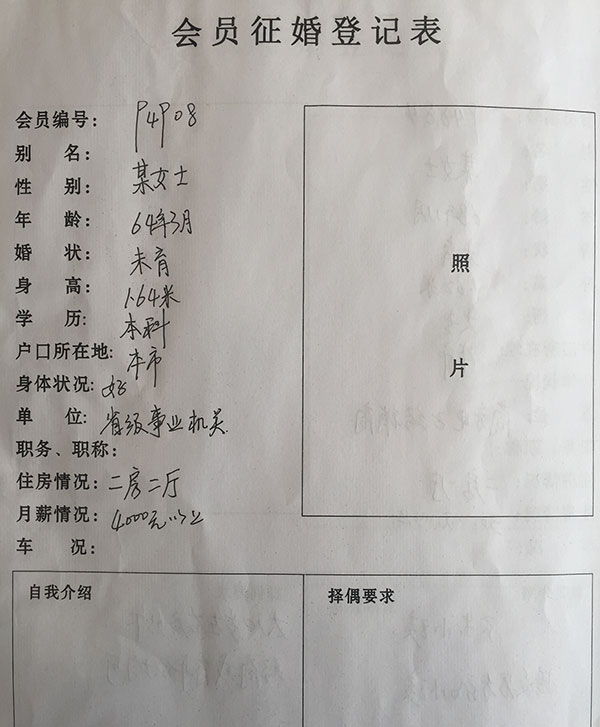 会员征婚登记表
会员编号: P4P08
别 名:
性 别: 某女士
年 龄: 64年3月
婚 状: 未育
身 高: 1.64米
学 历: 本科
户口所在地: 本市
身体状况: 好
单 位: 省级事业机关
职务、职称:
住房情况: 二房二厅
月薪情况: 4000元以上
车 况:
照
片
自我介绍
择偶要求